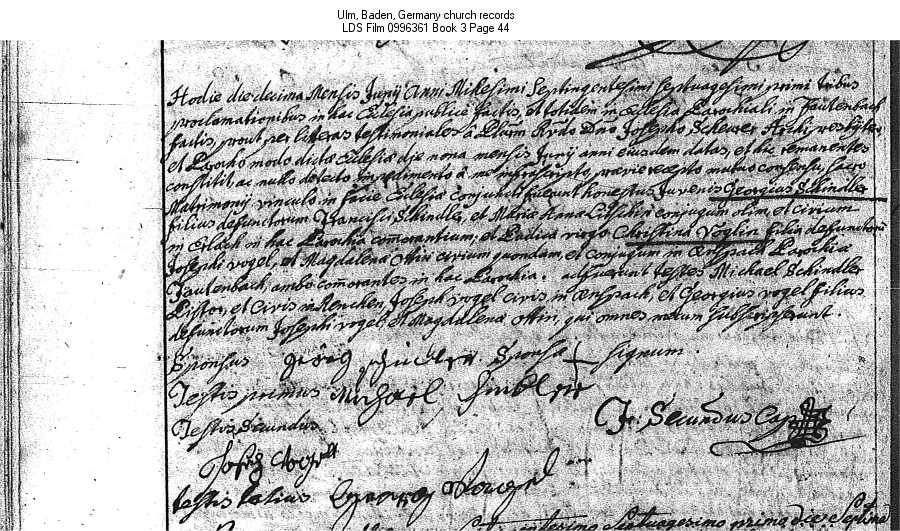 Ulm, Baden, Germany church records
LDS Film 0996361 Book 3 Page 44
Hodie die decima Mensis Junij Anni Millesimi Septingentesimi Septuagesimi primi tribus
proclamationibus in hac Ecclesia publice factis, et totidem in Ecclesia Parochiali in Fautenbach
factis, prout per litteras testimoniales à Josepho Scheurer Archipresbytero,
et Parocho modo dictæ Ecclesiæ die nona mensis Junij anni eiusdem datas, et hic remanentes
constitit, ac nullo detecto impedimento à me infrascripto, previe recepto mutuo consensu, sacro
Matrimonij vinculo in facie Ecclesiæ conjuncti fuerunt honestus Juvenis Georgius Schindler
filius defunctorum Francisci Schindler, et Maria Anna conjugum olim, et civium
in in hac Parochia commorantium, et Pudica virgo Christina Voglin filia defunctorum
Josephi vogel, et Magdalena civium quondam, et conjugum in Parochiæ
Fautenbach, ambo commorantes in hac Parochia. adfuerunt testes Michael Schindler
Pistor, et Civis in Renchen, Joseph vogel civis in et Georgius vogel filius
defunctorum Josephi vogel, et Magdalenæ qui omnes mecum subscripserunt.
Sponsus georg Schindler. Sponsa + signum.
Testis primus Michael Schindler
Testis Secundus
Fr: Secundus Cap
Joseph Vogel
testis Georg Vogel
Septuagesimo primo die